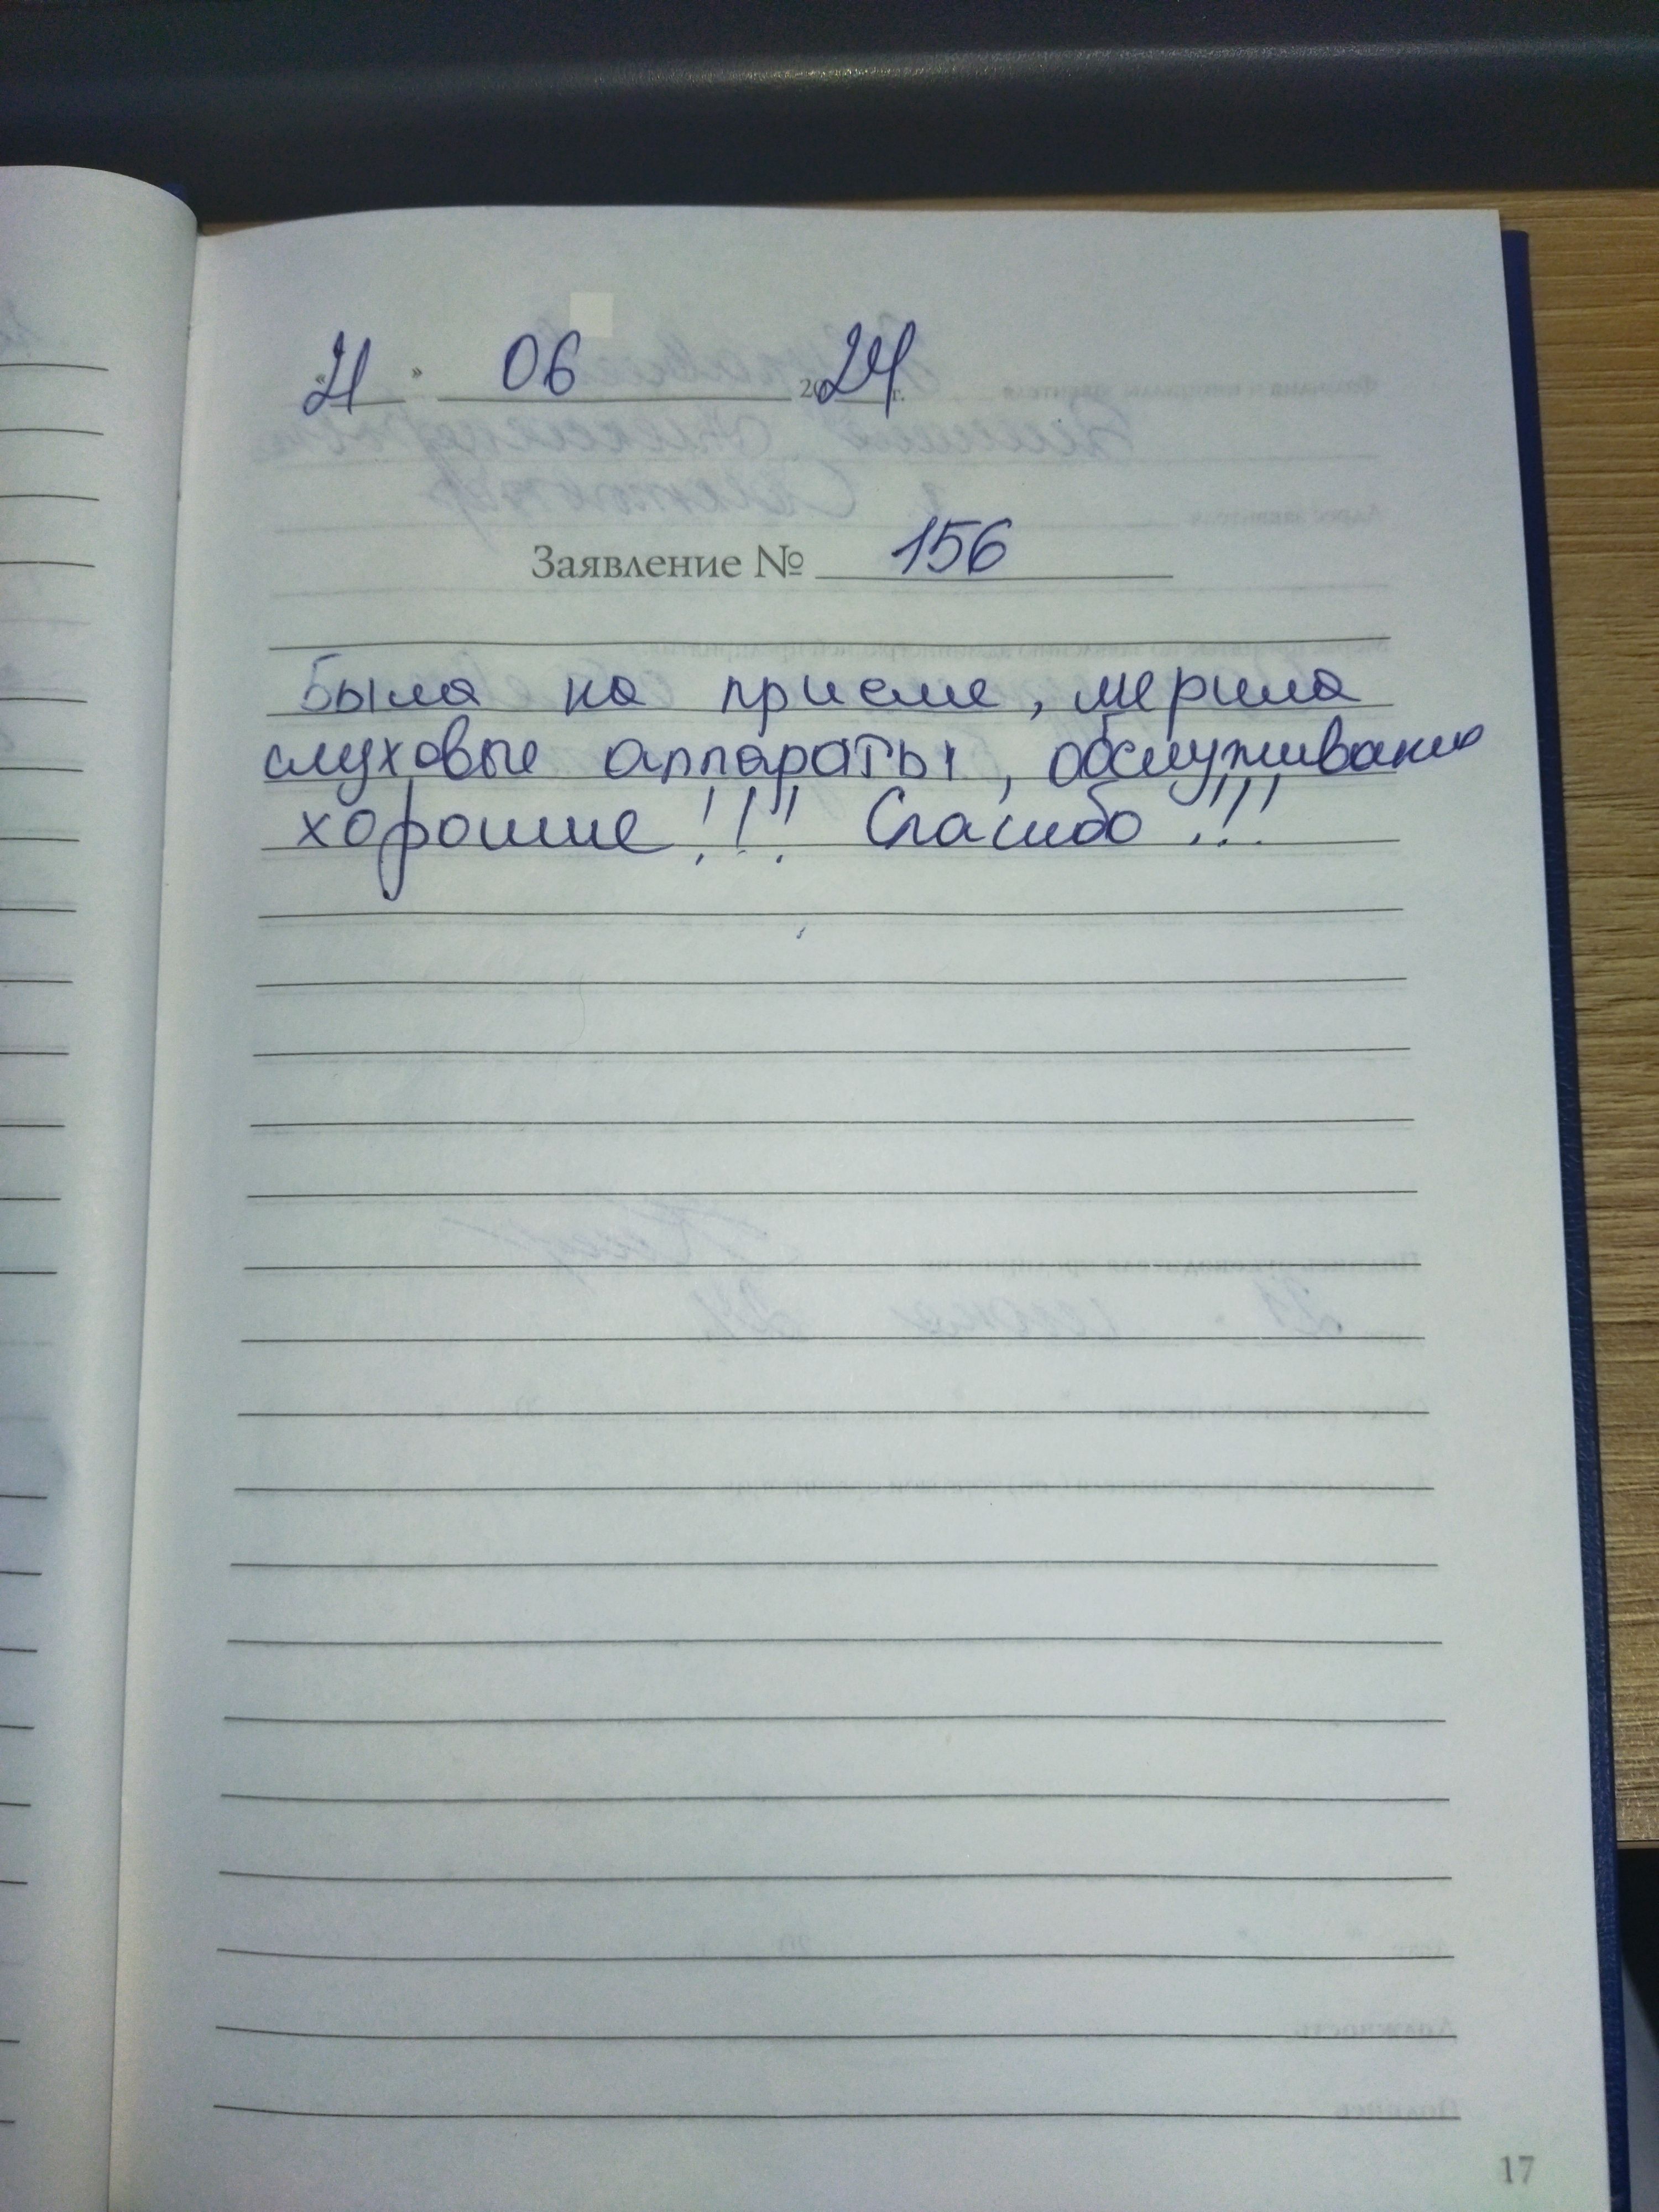 « 21 » 06 2024 г.
Заявление № 156
Была на приеме, мерила
слуховые аппараты, обслуживание
хорошие!!! Спасибо!!!
17